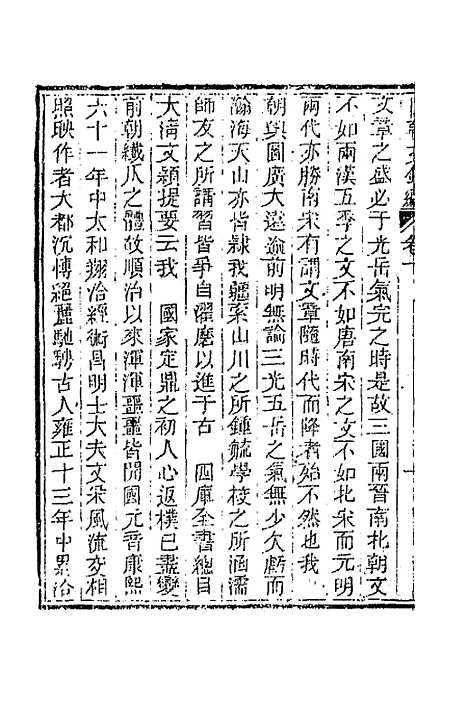 文章之盛必于光岳氣完之時是故三國兩晉南北朝文
不如兩漢五季之文不如唐南宋之文不如北宋而元明
兩代亦勝南宋有謂文章隨時代而降者殆不然也我
朝輿圖廣大遠逾前明無論三光五岳之氣無少欠虧而
瀚海天山亦皆隸我疆索山川之所鍾毓學校之所涵濡
師友之所講習皆爭自濯磨以進于古　四庫全書總目
大清文穎提要云我　國家定鼎之初人心返樸已盡變
前朝纖仄之體故順治以來渾渾噩噩皆開國元音康熙
六十一年中太和翔洽經術昌明士大夫文采風流交相
照映作者大都沉博絕麗馳騁古人雍正十三年中累洽